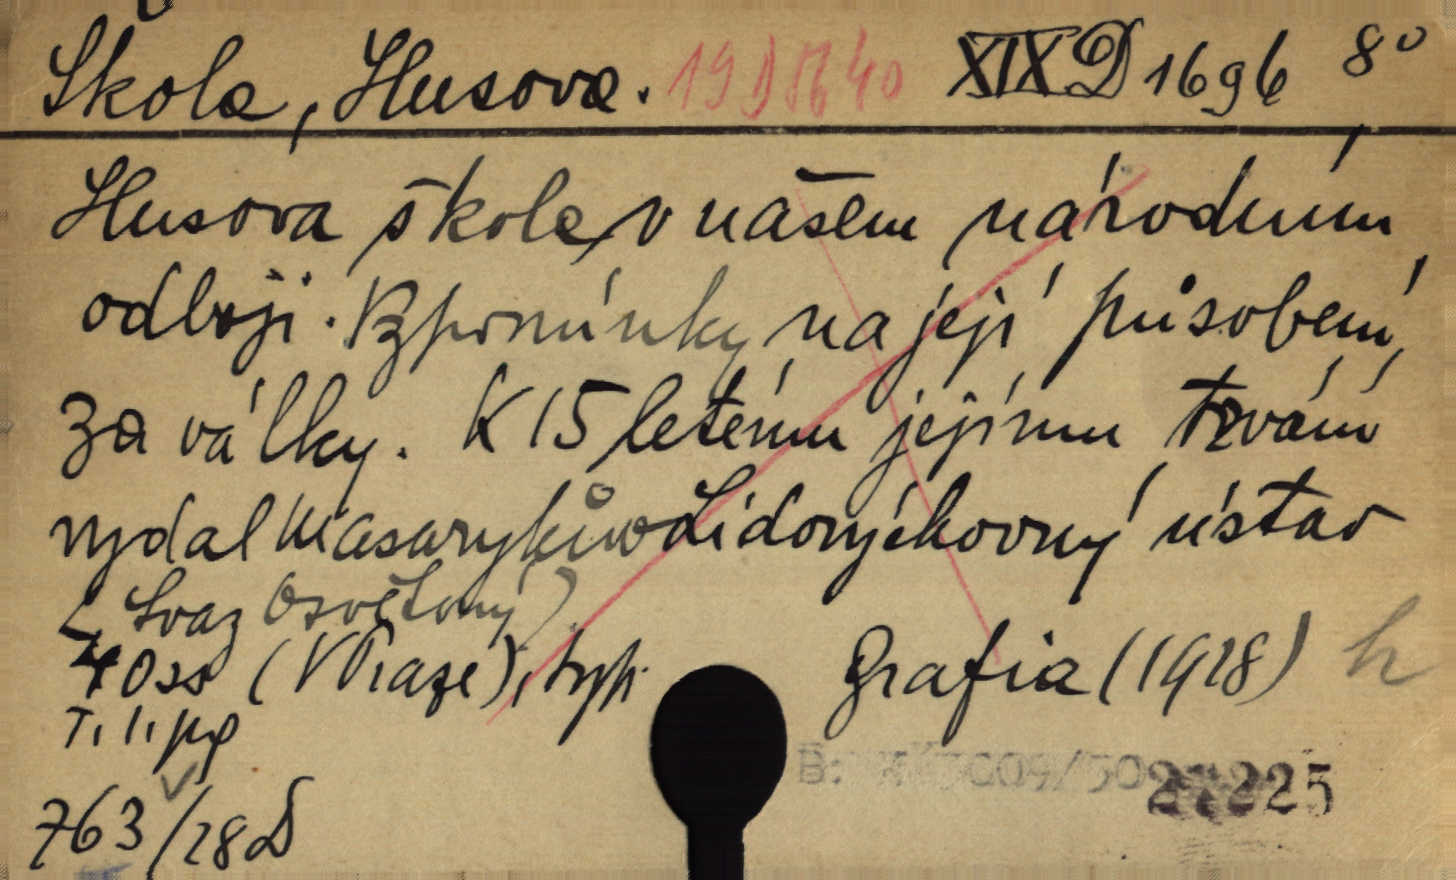 Škola, Husova. 19 D 1696 XIX D 1696 8°
Husova škola v našem národním
odboji. Vzpomínky na její působení
za války. K 15 letému jejímu trvání
vydal Masarykův Lidovýchovný ústav
(Svaz Osvětový).
40 ss (V Praze), typ. Grafia (1928) h
T. l. pp
763/28 D
27225